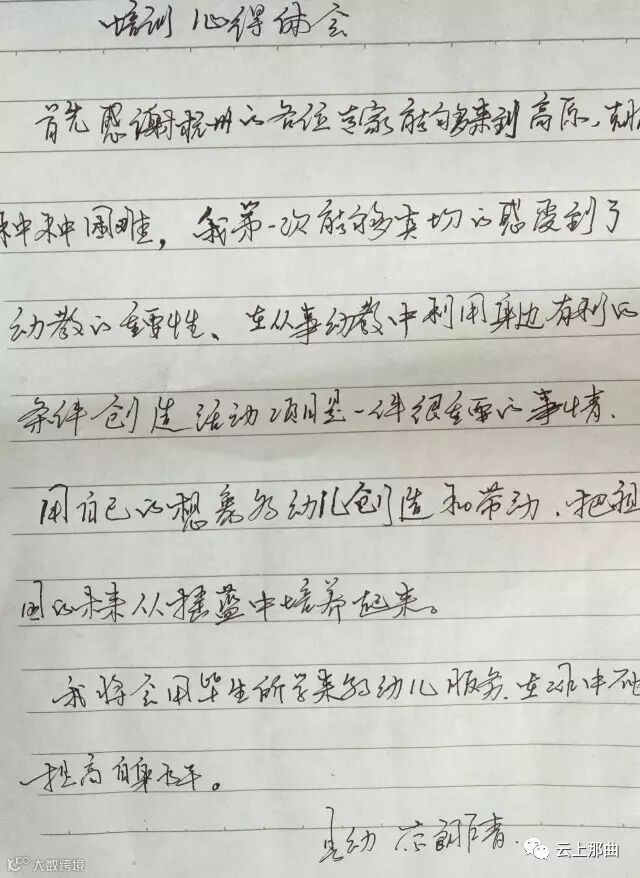 培训心得体会
首先感谢杭州的各位专家能够来到高原、克服
种种困难，我第一次能够真切的感受到了
幼教的重要性、在从事幼教中利用身边有利的
条件创造活动项目是一件很重要的事情.
用自己的想象为幼儿创造和带动、把祖
国的未来从摇蓝中培养起来。
我将会用毕生所学来为幼儿服务.在
提高自身水平。
云上那曲
10100 大数跨境